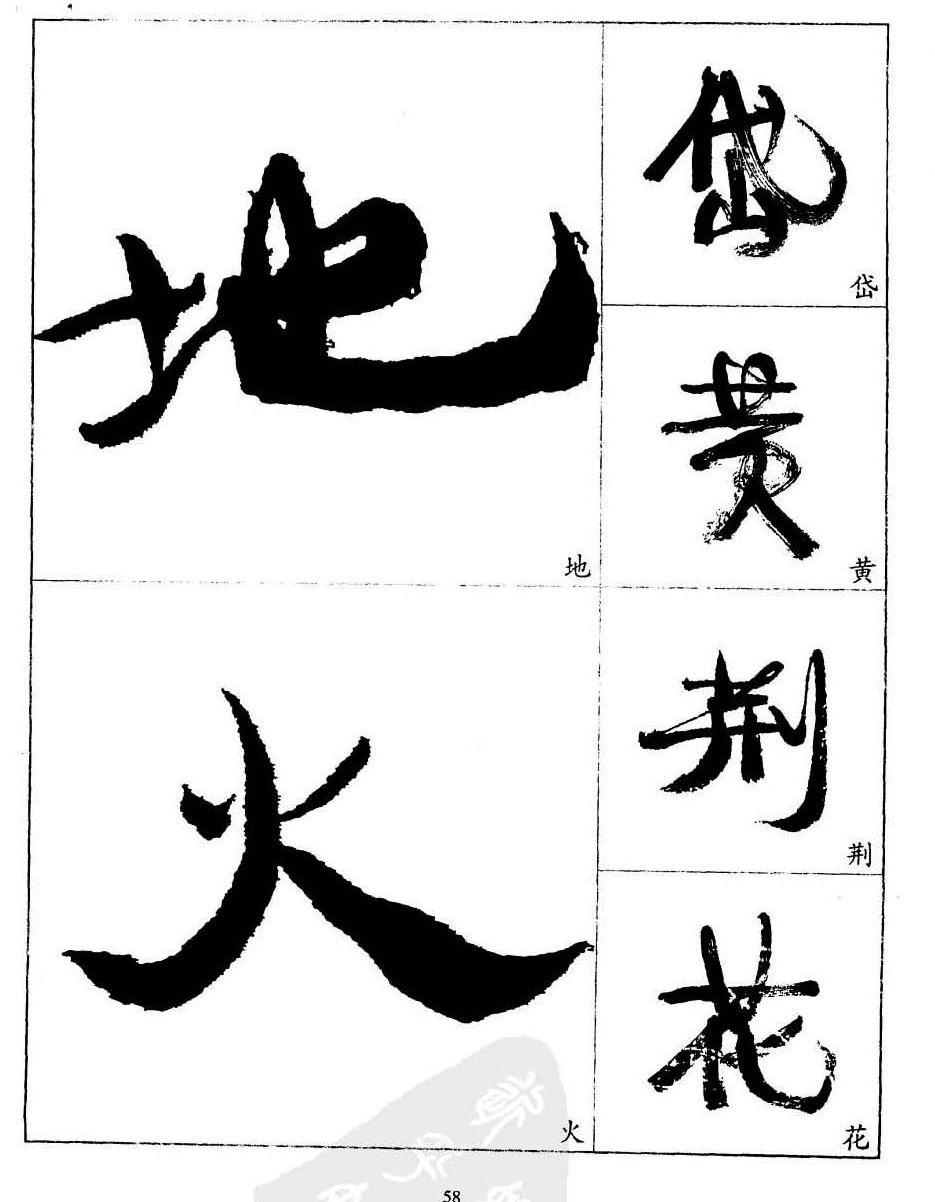 地
地
火
火
岱
岱
黄
黄
荆
荆
花
花
58